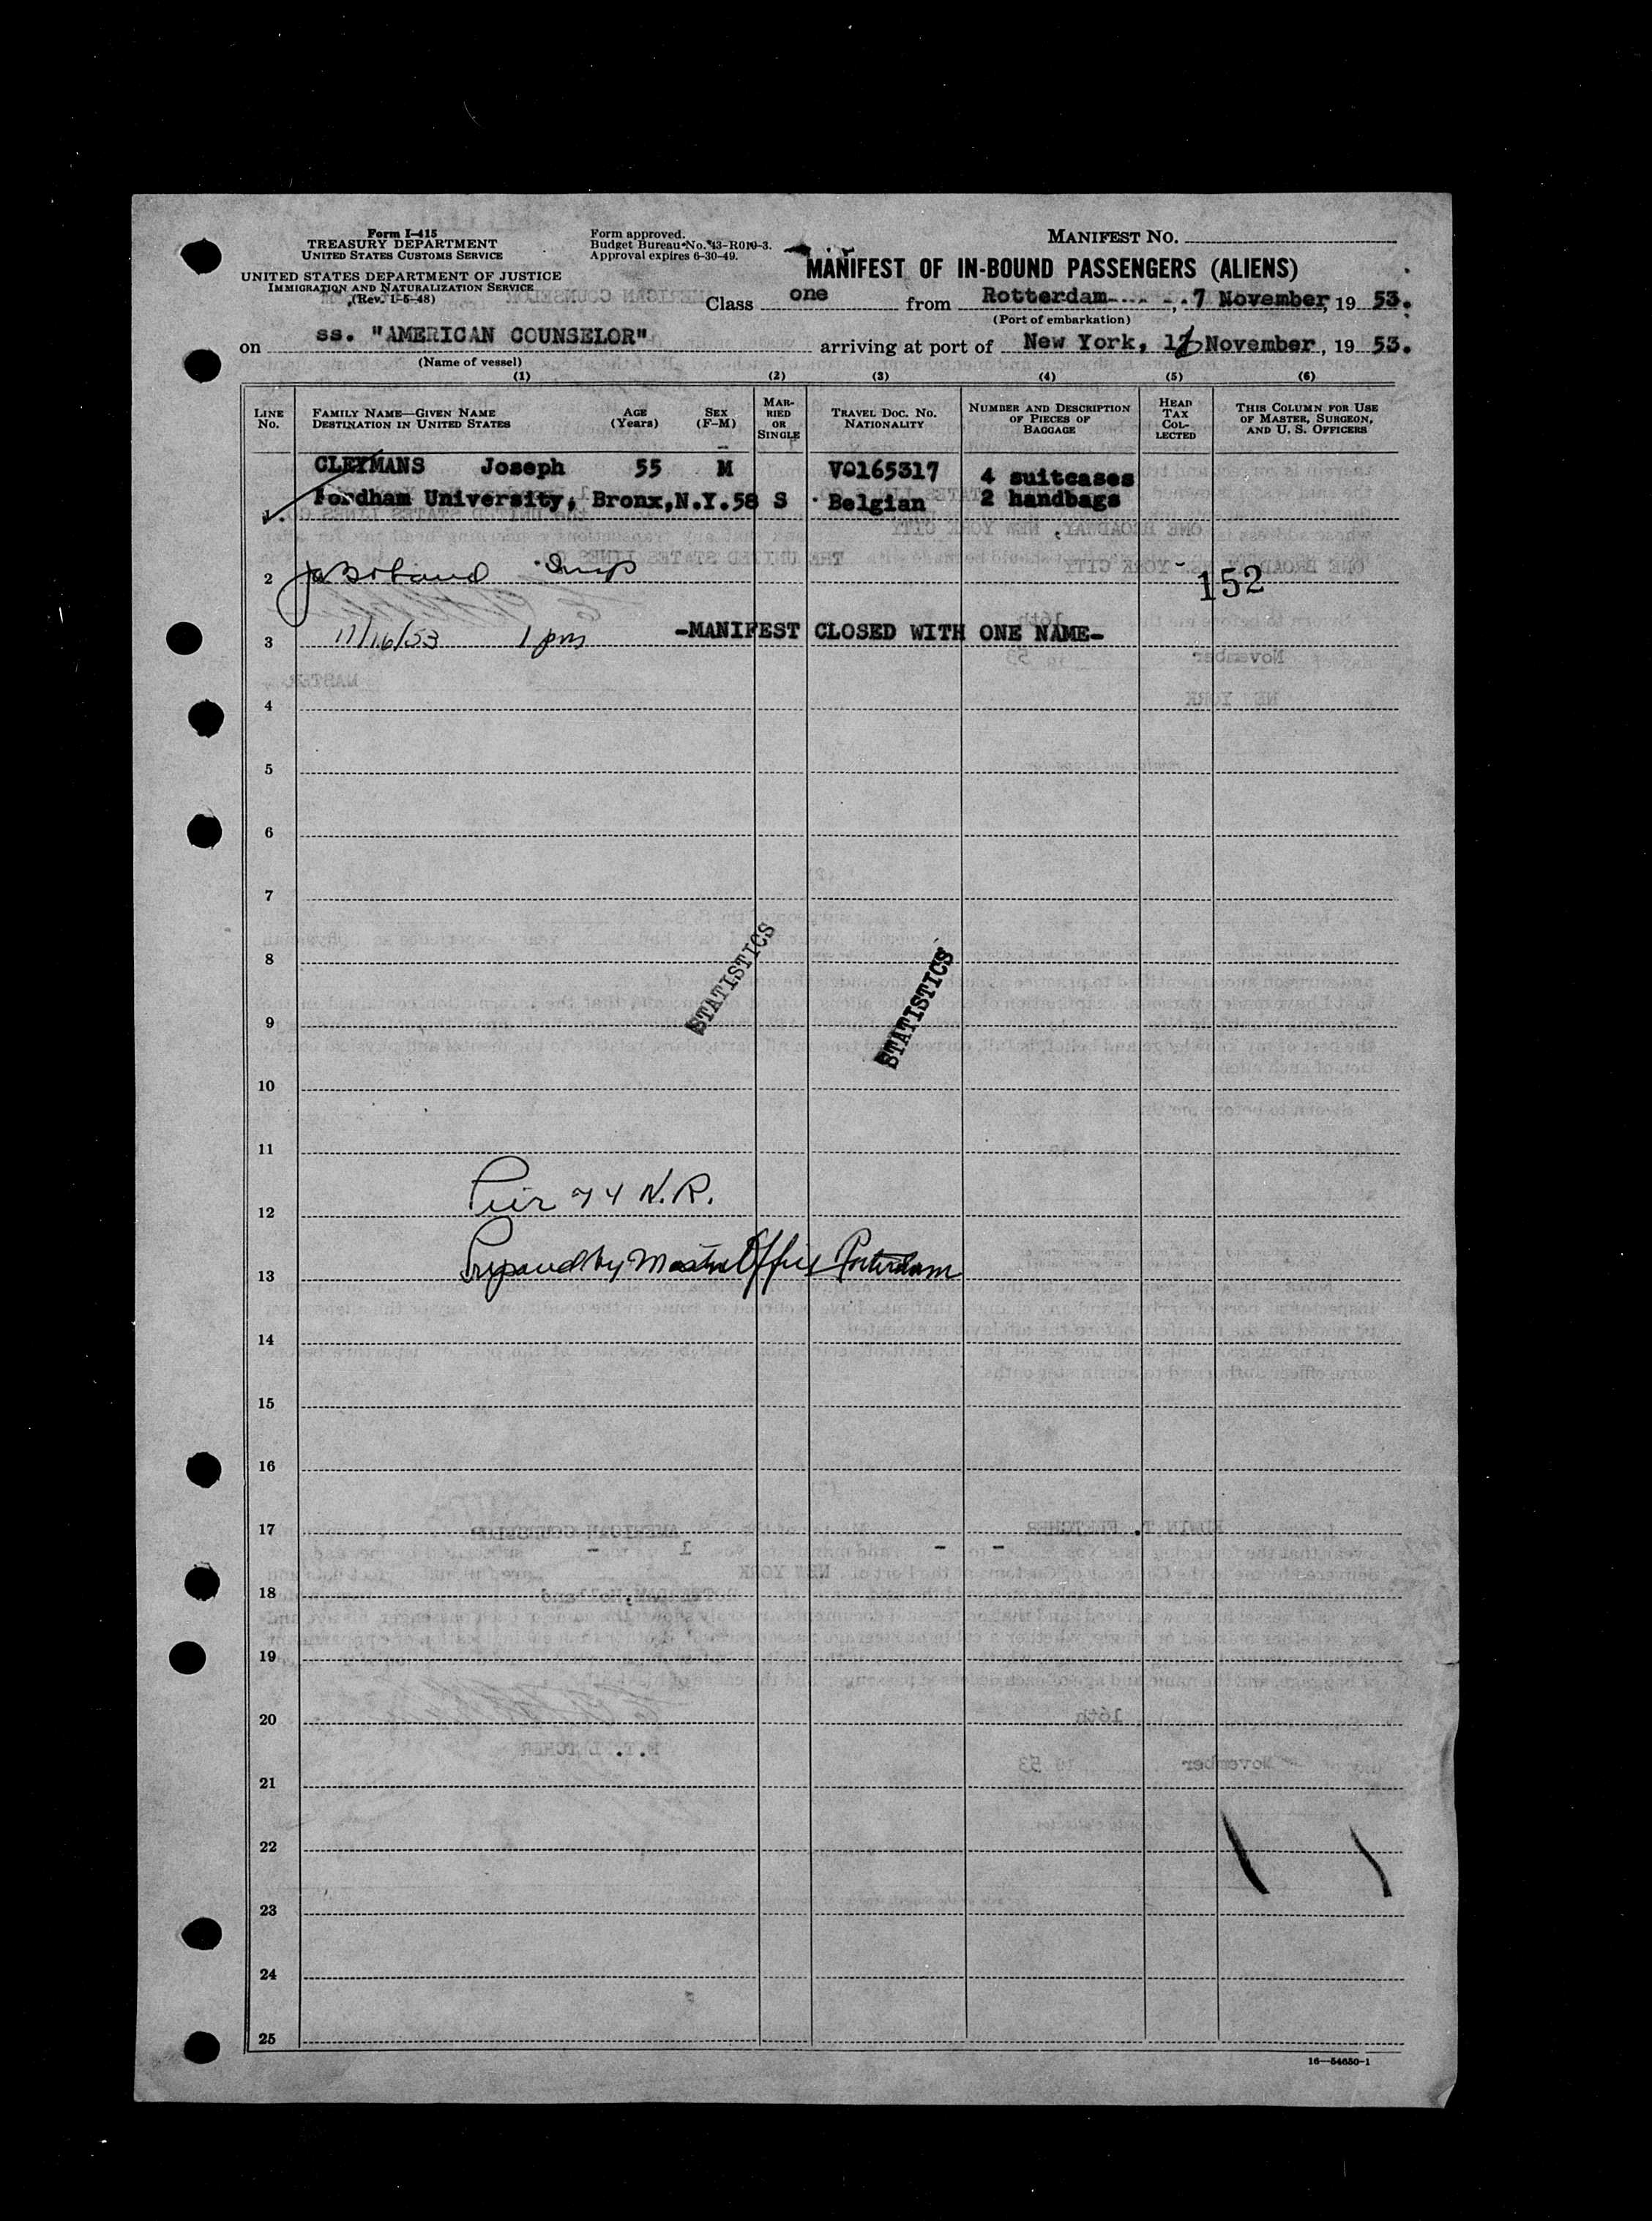 Form I-415
TREASURY DEPARTMENT
UNITED STATES CUSTOMS SERVICE
UNITED STATES DEPARTMENT OF JUSTICE
IMMIGRATION AND NATURALIZATION SERVICE
(Rev. 1-5-48)
Form approved.
Budget Bureau No. 43-R010-3.
Approval expires 6-30-49.
MANIFEST NO.
MANIFEST OF IN-BOUND PASSENGERS (ALIENS)
Class one from Rotterdam, 7 November, 19 53.
(Port of embarkation)
on ss. "AMERICAN COUNSELOR" arriving at port of New York, 16 November, 19 53.
(Name of vessel)
(1) (2) (3) (4) (5) (6)
LINE No. FAMILY NAME—GIVEN NAME DESTINATION IN UNITED STATES AGE (Years) SEX (F-M) MARRIED OR SINGLE TRAVEL DOC. NO. NATIONALITY NUMBER AND DESCRIPTION OF PIECES OF BAGGAGE HEAD TAX COLLECTED THIS COLUMN FOR USE OF MASTER, SURGEON, AND U. S. OFFICERS
CLEYMANS Joseph 55 M V0165317 4 suitcases
1 Fordham University, Bronx, N.Y. 58 S Belgian 2 handbags
2 Insp 152
3 11/16/53 1 pm -MANIFEST CLOSED WITH ONE NAME-
4
5
6
7
8
9
STATISTICS
STATISTICS
10
11
12 Pier 74 N.R.
13 Prepared by Master Office Rotterdam
14
15
16
17
18
19
20
21
22
23
24
25
16—54650-1